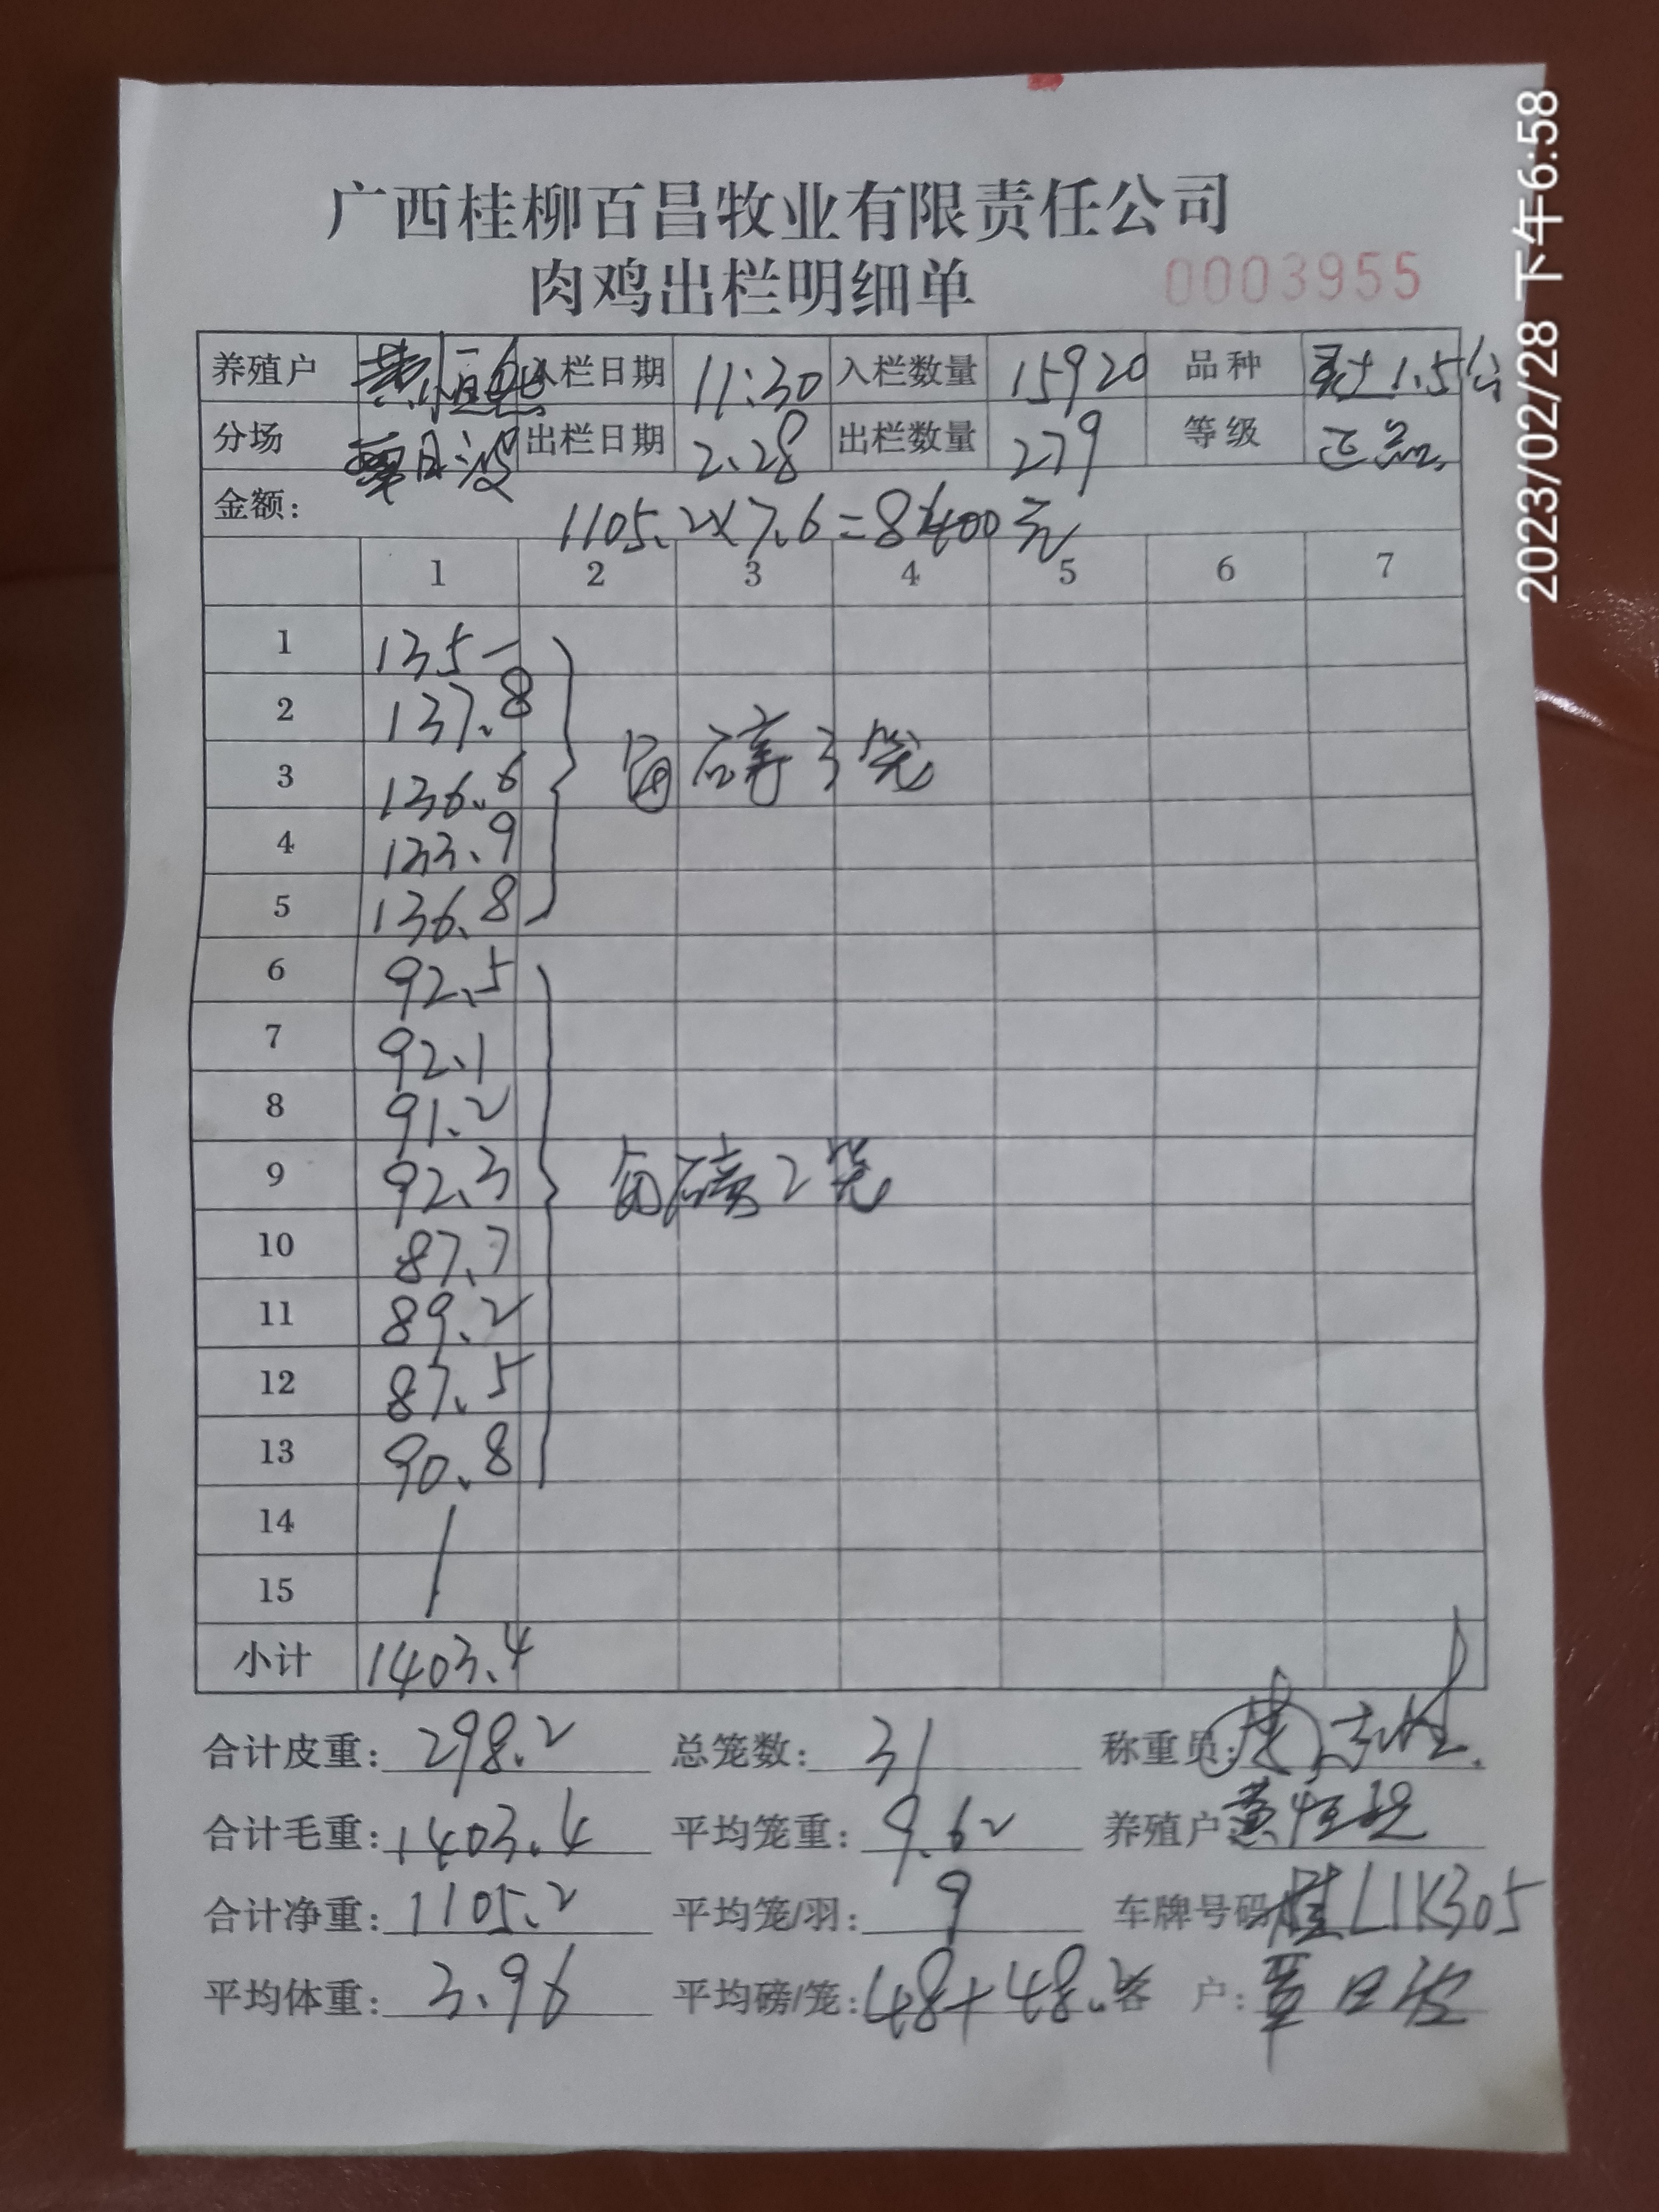 广西桂柳百昌牧业有限责任公司
肉鸡出栏明细单 0003955
养殖户 入栏日期 11:30 入栏数量 15920 品种 1.5公
分场 出栏日期 2.28 出栏数量 279 等级 正品
金额: 1105.2×7.6=8400元
1 2 3 4 5 6 7
1 135-
2 137.8
3 136.6 每磅3笼
4 133.9
5 136.8
6 92.5
7 92.1
8 91.2
9 92.3 每磅2笼
10 87.7
11 89.2
12 87.5
13 90.8
14
15
小计 1403.4
合计皮重: 298.2 总笼数: 31 称重员:
合计毛重: 1403.4 平均笼重: 9.62 养殖户
合计净重: 1105.2 平均笼/羽: 9 车牌号码 桂L1K305
平均体重: 3.96 平均磅/笼: 48+48.2 客 户: 覃日波
2023/02/28 下午6:58